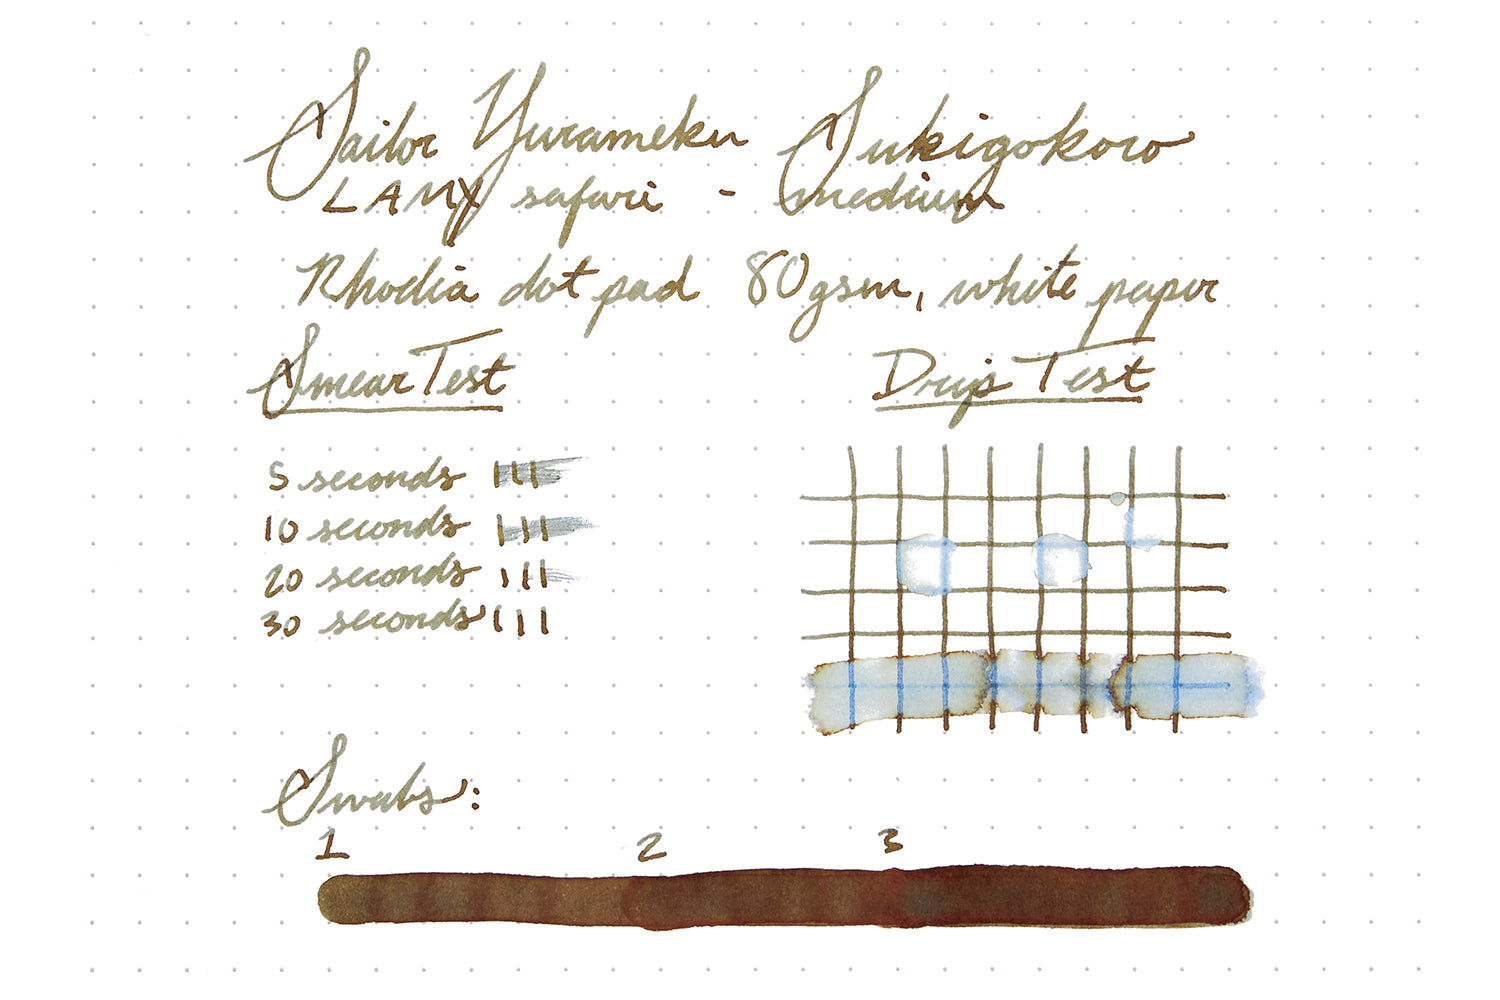 Sailor Yurameku Sukigokoro
LAMY safari - medium
Rhodia dot pad 80gsm, white paper
Smear Test
Drip Test
5 seconds
10 seconds
20 seconds
30 seconds
Swabs:
1 2 3